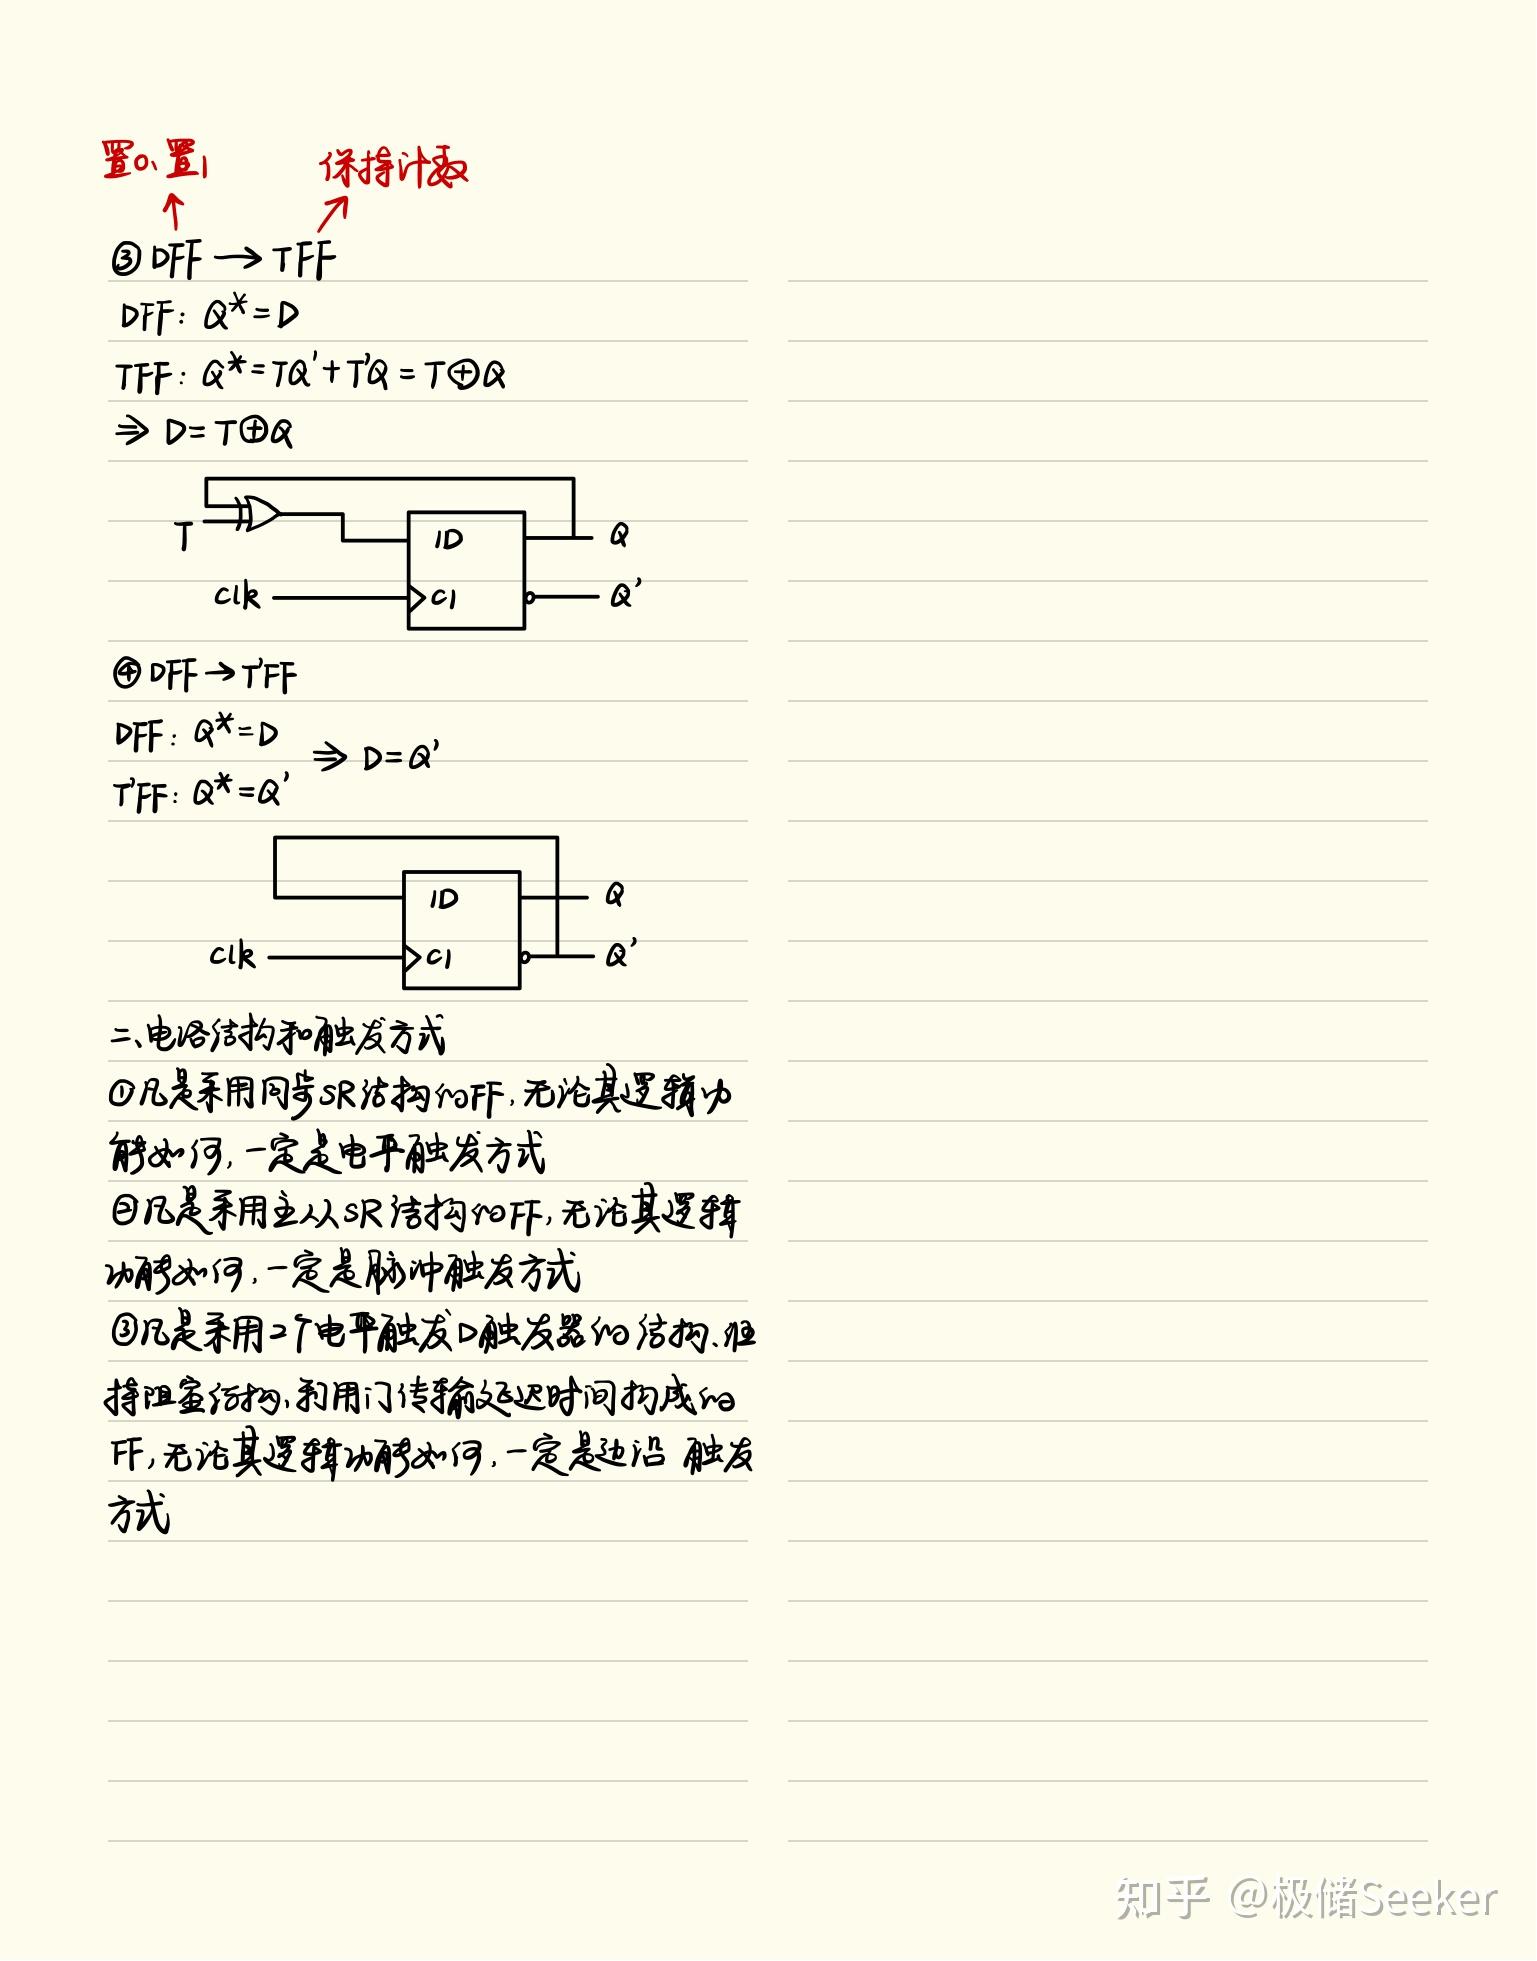 置0、置1 保持计数
③ DFF → TFF
DFF: Q*=D
TFF: Q*=TQ'+T'Q=T⊕Q
⇒ D=T⊕Q
T 1D Q
clk C1 Q'
④ DFF→T'FF
DFF: Q*=D
⇒ D=Q'
T'FF: Q*=Q'
1D Q
clk C1 Q'
二、电路结构和触发方式
①凡是采用同步SR结构的FF,无论其逻辑功
能如何,一定是电平触发方式
②凡是采用主从SR结构的FF,无论其逻辑
功能如何,一定是脉冲触发方式
③凡是采用2个电平触发D触发器的结构、维
持阻塞结构、利用门传输延迟时间构成的
FF,无论其逻辑功能如何,一定是边沿 触发
方式
知乎 @极储Seeker